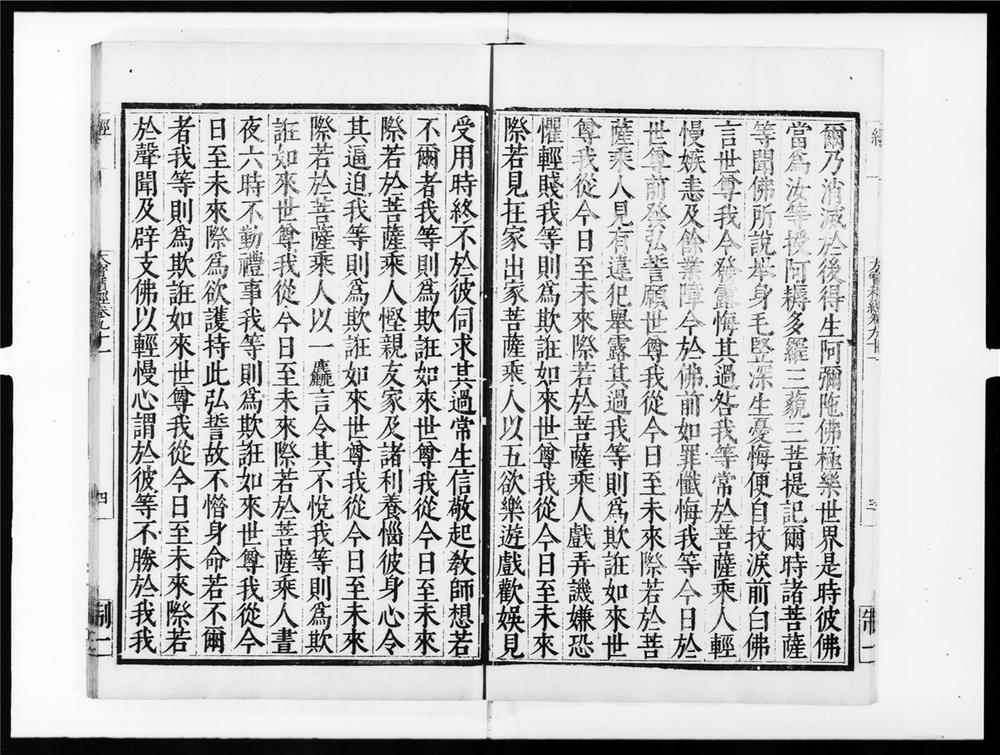 爾乃消滅於後得生阿彌陀佛極樂世界是時彼佛
當爲汝等授阿耨多羅三藐三菩提記爾時諸菩薩
等聞佛所說舉身毛竪深生憂悔便自抆淚前白佛
言世尊我今發露悔其過咎我等常於菩薩乘人輕
慢嫉恚及餘業障今於佛前如罪懺悔我等今日於
世尊前發弘誓願世尊我從今日至未來際若於菩
薩乘人見有違犯舉露其過我等則爲欺誑如來世
尊我從今日至未來際若於菩薩乘人戲弄譏嫌恐
懼輕賤我等則爲欺誑如來世尊我從今日至未來
際若見在家出家菩薩乘人以五欲樂遊戲歡娛見
受用時終不於彼伺求其過常生信敬起教師想若
不爾者我等則爲欺誑如來世尊我從今日至未來
際若於菩薩乘人慳親友家及諸利養惱彼身心令
其逼迫我等則爲欺誑如來世尊我從今日至未來
際若於菩薩乘人以一麤言令其不悅我等則爲欺
誑如來世尊我從今日至未來際若於菩薩乘人晝
夜六時不勤禮事我等則爲欺誑如來世尊我從今
日至未來際爲欲護持此弘誓故不悋身命若不爾
者我等則爲欺誑如來世尊我從今日至未來際若
於聲聞及辟支佛以輕慢心謂於彼等不勝於我我
經
大寶積經卷九十一
四
制一